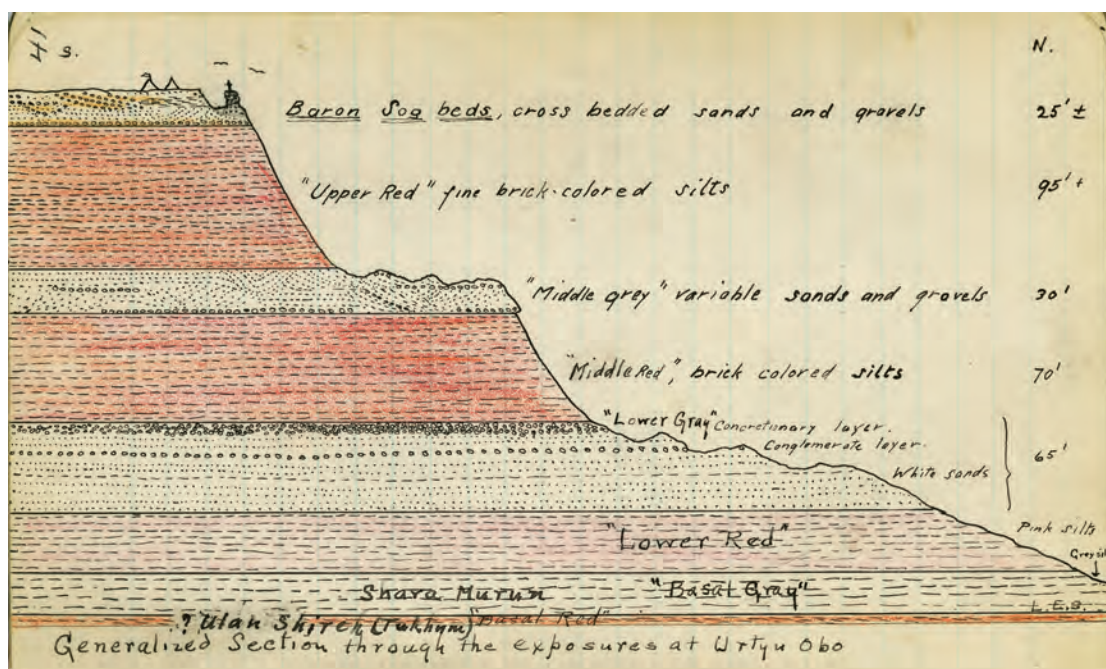 41 S. N.
Baron Sog beds, cross bedded sands and gravels 25' ±
"Upper Red" fine brick-colored silts 95' +
"Middle grey" variable sands and gravels 30'
"Middle Red", brick colored silts 70'
"Lower Gray" Concretionary layer.
Conglomerate layer.
65'
White sands
Pink silts
"Lower Red"
Grey
Shara Murun "Basal Gray"
L.E.S.
? Ulan Shireh (Tukhum) "Basal Red"
Generalized Section through the exposures at Urtyn Obo